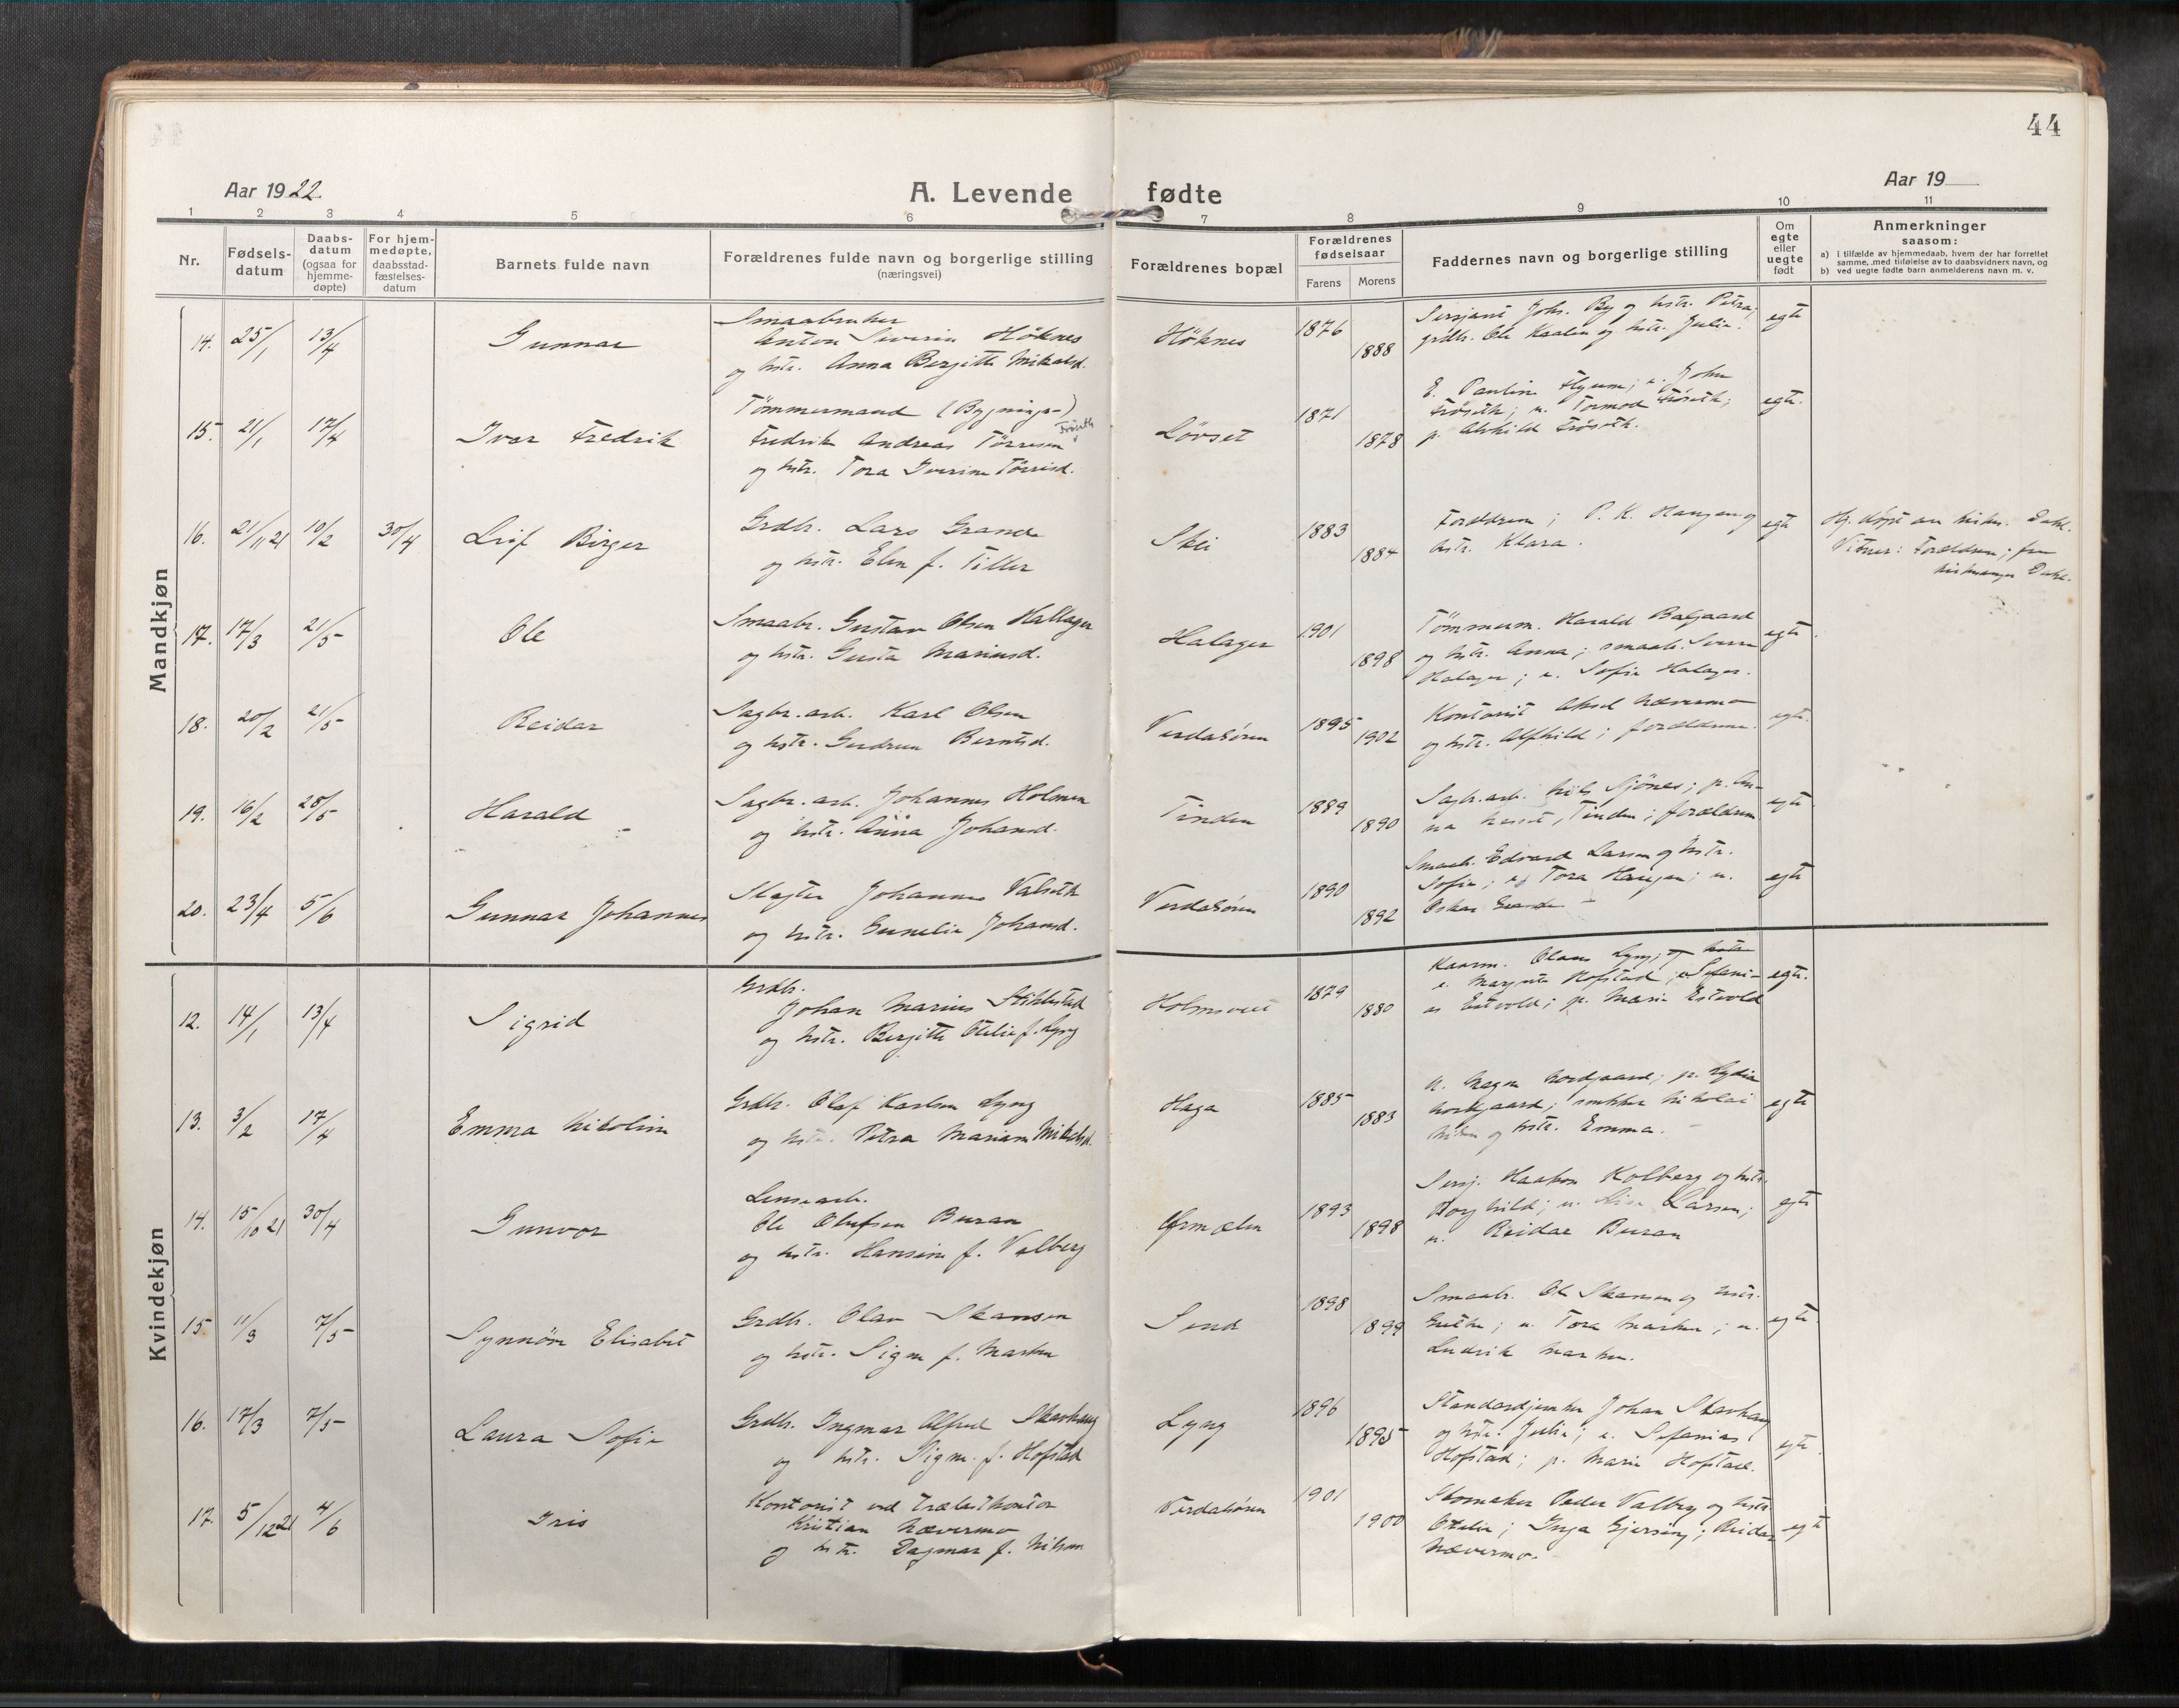 44
Aar 1922
A. Levende fødte
Aar 19
1 2 3 4 5 6 7 8 9 10 11
Nr.
Fødsels-
datum
Daabs-
datum
(ogsaa for
hjemme-
døpte)
For hjem-
medøpte,
daabsstad-
fæstelses-
datum
Barnets fulde navn
Forældrenes fulde navn og borgerlige stilling
(næringsvei)
Forældrenes bopæl
Forældrenes
fødselsaar
Farens Morens
Faddernes navn og borgerlige stilling
Om
egte
eller
uegte
født
Anmerkninger
saasom:
a) i tilfælde av hjemmedaab, hvem der har forrettet
samme, med tilføielse av to daabsvidners navn, og
b) ved uegte fødte barn anmelderens navn m. v.
Mandkjøn
14. 25/1 13/4 Gunnar
Smaabruker
Anton Severin Höknes
og hstr. Anna Bergitte Mikalsd.
Höknes 1876 1888
Sersjant Johs. By og hstr. Petra;
grdbr. Ole Kaalen og hstr. Julie.
egte
15. 21/1 17/4 Ivar Fredrik
Tömmermand (Bygnings-)
Fredrik Andreas Törresen Fröseth
og hstr. Tora Iverine Törrisd.
Lövset 1871 1878
E. Pauline Flyum; u. John
Fröseth; u. Tormod Fröseth;
p. Alvhild Fröseth.
egte.
16. 21/11 21 10/2 30/4 Leif Birger
Grdbr. Lars Grande
og hstr. Elen f. Tiller
Skei 1883 1884
Forældrene; P. K. Haugan og
hstr. Klara.
egte
Hj. döpt av Dahl.
Vitner: Forældrene; fru
Dahl.
17. 17/3 21/5 Ole
Smaabr. Gustav Olsen Hallager
og hstr. Gusta Mariusd.
Halager 1901 1898
Tömmerm. Harald Balgaard
og hstr. Anna; smaabr. Sverre
Halager; u. Sofie Halager.
egte
18. 20/2 21/5 Reidar
Sagbr.arb. Karl Olsen
og hstr. Gudrun Berntsd.
Verdalsören 1895 1902
Kontorist Aksel Nævermo
og hstr. Alfhild; forældrene.
egte.
19. 16/2 28/5 Harald
Sagbr.arb. Johannes Holmen
og hstr. Anna Johansd.
Tinden 1889 1890
Sagbr.arb. Nils Sjönes; p. An-
na Tinden; forældrene
egte
20. 23/4 5/6 Gunnar Johannes
Slagter Johannes Valseth
og hstr. Gunelie Johansd.
Verdalsören 1890 1892
Smaabr. Edvard Larsen og hstr.
Sofie; Tora Haugan; u.
Oskar Grande
egte
Kvindekjøn
12. 14/1 13/4 Sigrid
Grdbr.
Johan Marius Stiklestad
og hstr. Bergitte Otelie f. Lyng
Holmsveet 1879 1880
Kaarm. Olaus Lyng; og hstr.
Hofstad; Sefani-
as Estvold; p. Marie Estvold
egte.
13. 3/2 17/4 Emma Nikoline
Grdbr. Olaf Karlsen Lyng
og hstr. Petra Mariane Mikalsd.
Haga 1885 1883
U. Magne Nordgaard; p. Lydia
Nordgaard; snekker Nikolai
og hstr. Emma.
egte
14. 15/10 21 30/4 Gunvor
Lensearb.
Ole Olufsen Buran
og hstr. Hansine f. Valberg
Ørmælen 1893 1898
Sersj. Haakon Kolberg og hstr.
Borghild; u. Larsen;
u. Reidar Buran
egte
15 11/3 7/5 Synnöve Elisabet
Grdbr. Olav Skansen
og hstr. Signe f. Marken
Send 1898 1899
Smaabr. Ol. Skansen og hstr.
Grethe; u. Tora Marken; u.
Ludvik Marken.
egte
16. 17/3 7/5 Laura Sofie
Grdbr. Ingmar Alfred Skarhaug
og hstr. Signe f. Hofstad
Lyng 1896 1895
Standardjunker Johan Skarhaug
og hstr. Julie; u. Sefanias
Hofstad; p. Marie Hofstad.
egte.
17. 5/12 21 4/6 Iris
Kontorist ved trælastkontor
Kristian Nævermo
og hstr. Dagmar f. Nilsen
Verdalsören 1901 1900
Skomaker Peder Valberg og hstr.
Otelie; Inga Gjersing; Reidar
Nævermo.
egte